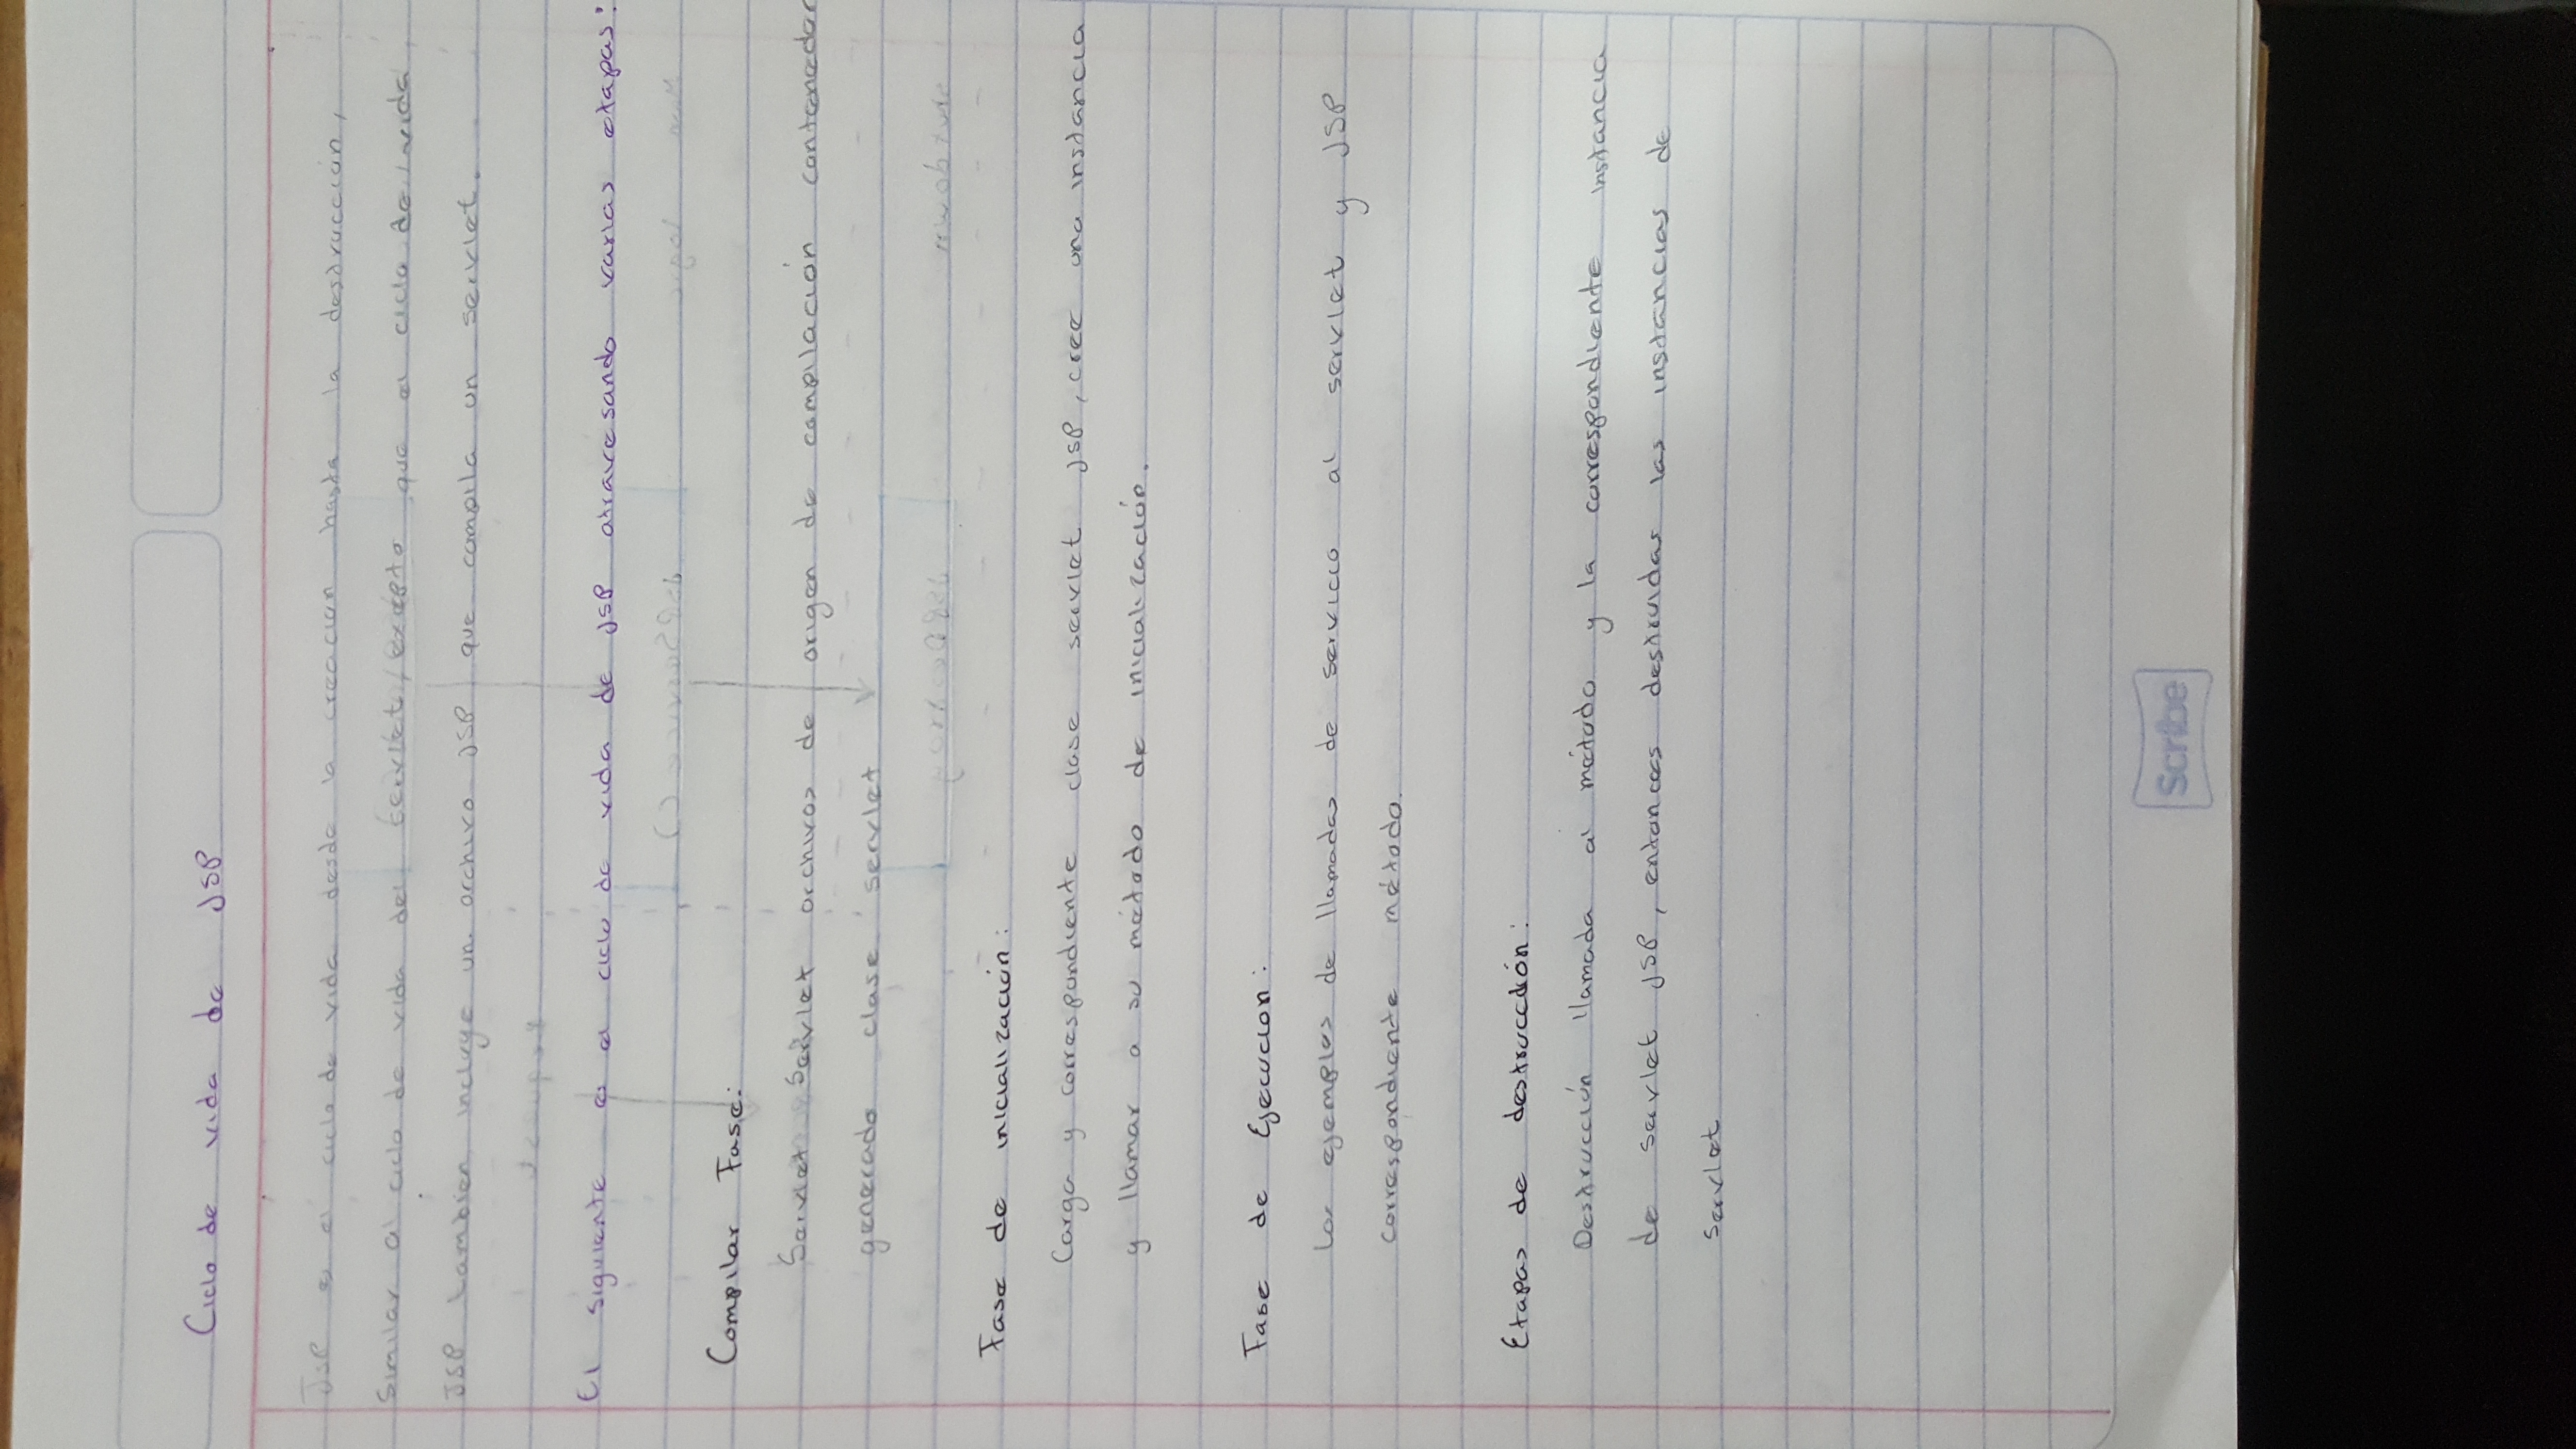 Ciclo de vida de JSP
JSP es el ciclo de vida desde la creacion hasta la destrucción,
Similar al ciclo de vida del servlet, excepto que el ciclo de vida
JSP tambien incluye un archivo JSP que compila un servlet.
El siguiente es el ciclo de vida de JSP atravesando varias etapas:
Compilar Fase:
Servlet Servlet archivos de origen de compilación contenedor
generado clase servlet
Fase de inicialización:
Carga y correspondiente clase servlet JSP, cree una instancia
y llamar a su método de inicialización.
Fase de Ejecucion:
Los ejemplos de llamadas de servicio al servlet y JSP
correspondiente método.
Etapas de destrucción:
Destrucción llamada al método y la correspondiente instancia
de servlet JSP, entonces destruidas las instancias de
Servlet
Scribe